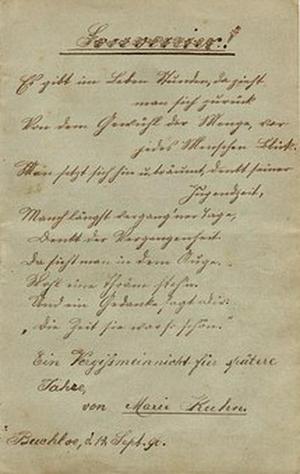 Es gibt im Leben Stunden, da zieht
man sich zurück
Von dem Gewühl der Menge, vor
jedes Menschen Blick.
Man setzt sich hin u. träumt, denkt seiner
Jugendzeit,
Manch längst vergang'ner Tage,
Denkt der Vergangenheit.
Da sieht man in dem Auge.
Wohl eine Thräne stehn.
Und ein Gedanke sagt uns:
„Die Zeit sie war so schön."
Ein Vergißmeinnicht für spätere
Jahre,
von Marie Kuhn.
Buchloe, d. Sept.